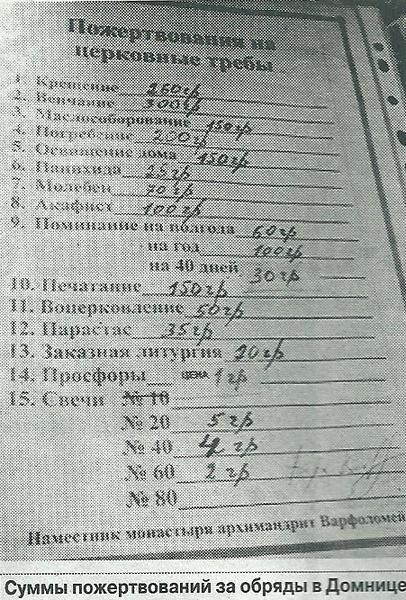 Пожертвования на
церковные требы
1. Крещение 250гр
2. Венчание 300гр
3. Маслособорование 150гр
4. Погребение 200гр
5. Освящение дома 150гр
6. Панихида 25гр
7. Молебен 20гр
8. Акафист 100гр
9. Поминание на полгода 60гр
на год 100гр
на 40 дней 30гр
10. Печатание 150гр
11. Воцерковление 50гр
12. Парастас 35гр
13. Заказная литургия 20гр
14. Просфоры ЦЕНА 1гр
15. Свечи № 10
№ 20 5гр
№ 40 4гр
№ 60 2гр
№ 80
Наместник монастыря архимандрит Варфоломей
Суммы пожертвований за обряды в Домнице